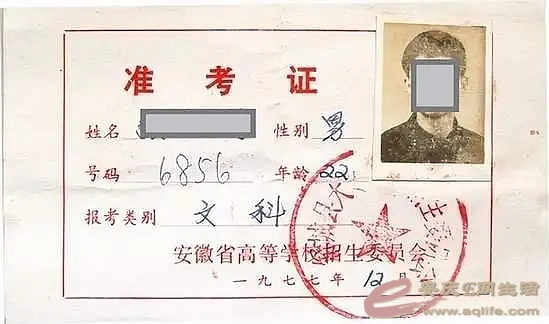 准考证
姓名 性别 男
号码 6856 年龄 22
报考类别 文科
安徽省高等学校招生委员会
一九七七年 12月
安庆E网生活
www.aqlife.com